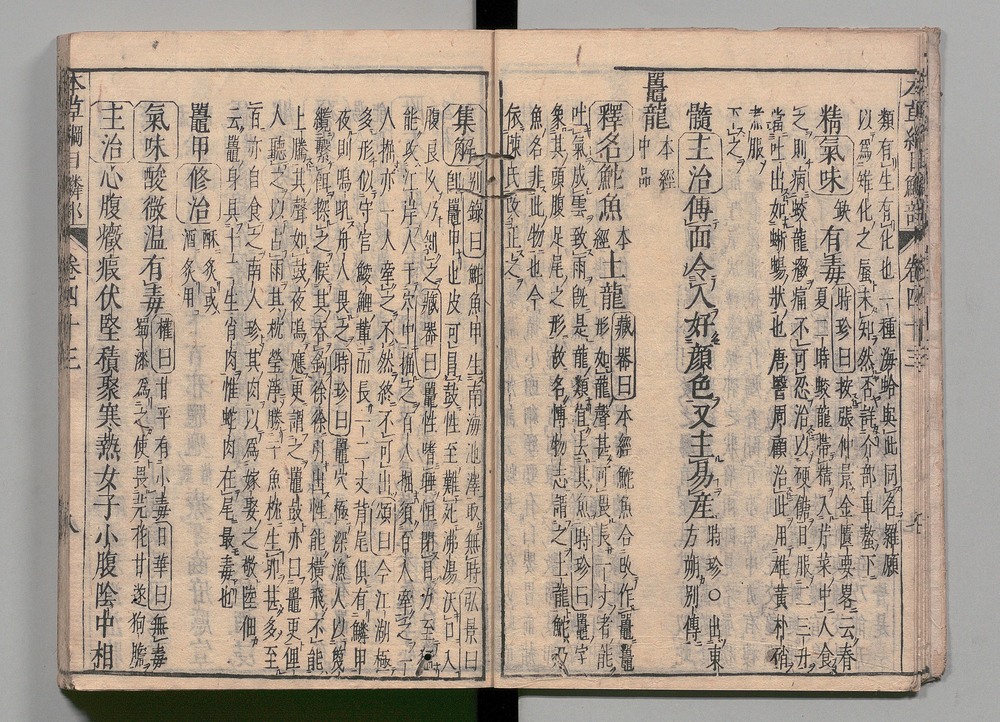 類有生有化也一種海蛤與此同名羅願
以爲雉化之蜃未知然否詳介部車螯下
精氣味鈌有毒時珍曰按張仲景金匱要畧云春
夏二時蛟龍帶精入芹菜中人食
之則病蛟龍癥痛不可忍治以硬餹日服二三升
當吐出如蜥蜴狀也唐醫周顧治此用雄黃朴硝
煮服
下之
髓主治傅面令人好顏色又主易産時珍○出東
方朔別傳
鼉龍本經
中品
釋名鮀魚本經土龍藏器曰本經鮀魚合改作鼉鼉
形如龍聲甚可畏長一丈者能
吐氣成雲致雨既是龍類宜去其魚時珍曰鼉字
象其頭腹足尾之形故名博物志謂之土龍鮀乃
魚名非此物也今
依陳氏改正之
本草綱目鱗部 卷四十三 八
集解別錄曰鮀魚甲生南海池澤取無時弘景曰
卽鼉甲也皮可冒鼓性至難死沸湯沃口入
腹良久乃剝之藏器曰鼉性嗜睡恒閉目力至猛
能攻江岸人于穴中掘之百人掘須百人牽之一
人掘亦一人牽之不然終不可出頌曰今江湖極
多形似守宮鯪鯉輩而長一二丈背尾俱有鱗甲
夜則鳴吼舟人畏之時珍曰鼉穴極深漁人以篾
纜繫餌探之候其吞鉤徐徐引出性能橫飛不能
上騰其聲如鼓夜鳴應更謂之鼉鼓亦曰鼉更俚
人聽之以占雨其枕瑩淨勝于魚枕生卵甚多至
百亦自食之南人珍其肉以爲嫁娶之敬陸佃
云鼉身具十二生肖肉惟蛇肉在尾最毒也
鼉甲修治酥炙或
酒炙用
氣味酸微温有毒權曰甘平有小毒日華曰無毒
蜀漆爲之使畏芫花甘遂狗膽
主治心腹癥瘕伏堅積聚寒熱女子小腹陰中相